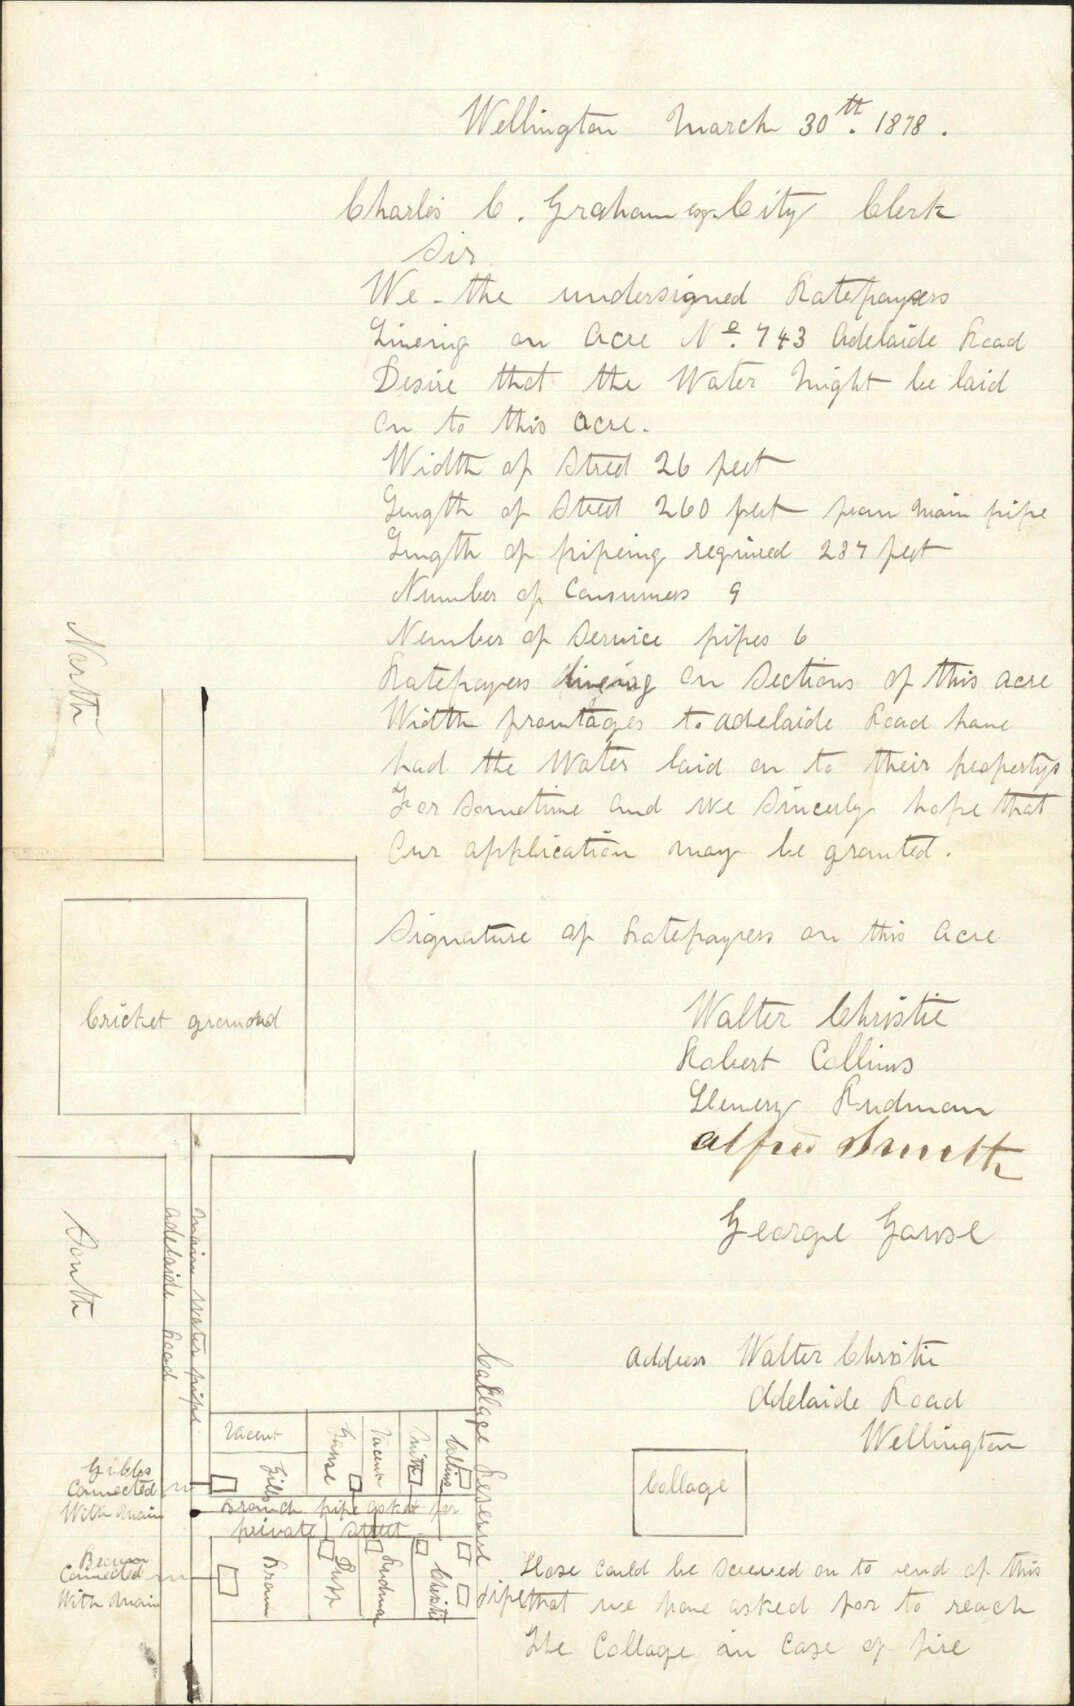 Wellington March 30th. 1878.
Charles C. Graham esqr City Clerk
Sir
We - the undersigned Ratepayers
Liveing on Acre No. 743 Adelaide Road
Desire that the Water Might be laid
on to this acre.
Width of Street 26 feet
Length of Street 260 feet from Main pipe
Length of pipeing required 237 feet
Number of Consumers 9
Number of Service pipes 6
Ratepayers liveing on Sections of this acre
Width frontages to adelaide Road have
had the Water laid on to their propertys
For Sometime and we Sincerly hope that
Our application may be granted.
Signature of Ratepayers on this Acre
Walter Christie
Robert Collins
Henery Rudman
Alfred Smith
George Gawse
Address Walter Christie
Adelaide Road
Wellington
North
Cricket ground
South
main water pipe
adelaide Road
Collage Reserve
Vacent
Gawse
Vacent
Smith
Collins
Connected
With Main
Branch pipe asked for
private street
Connected
With Main
Brown
Rudman
Christie
Collage
Hose could be screwed on to end of this
pipe that we have asked for to reach
The Collage in Case of fire